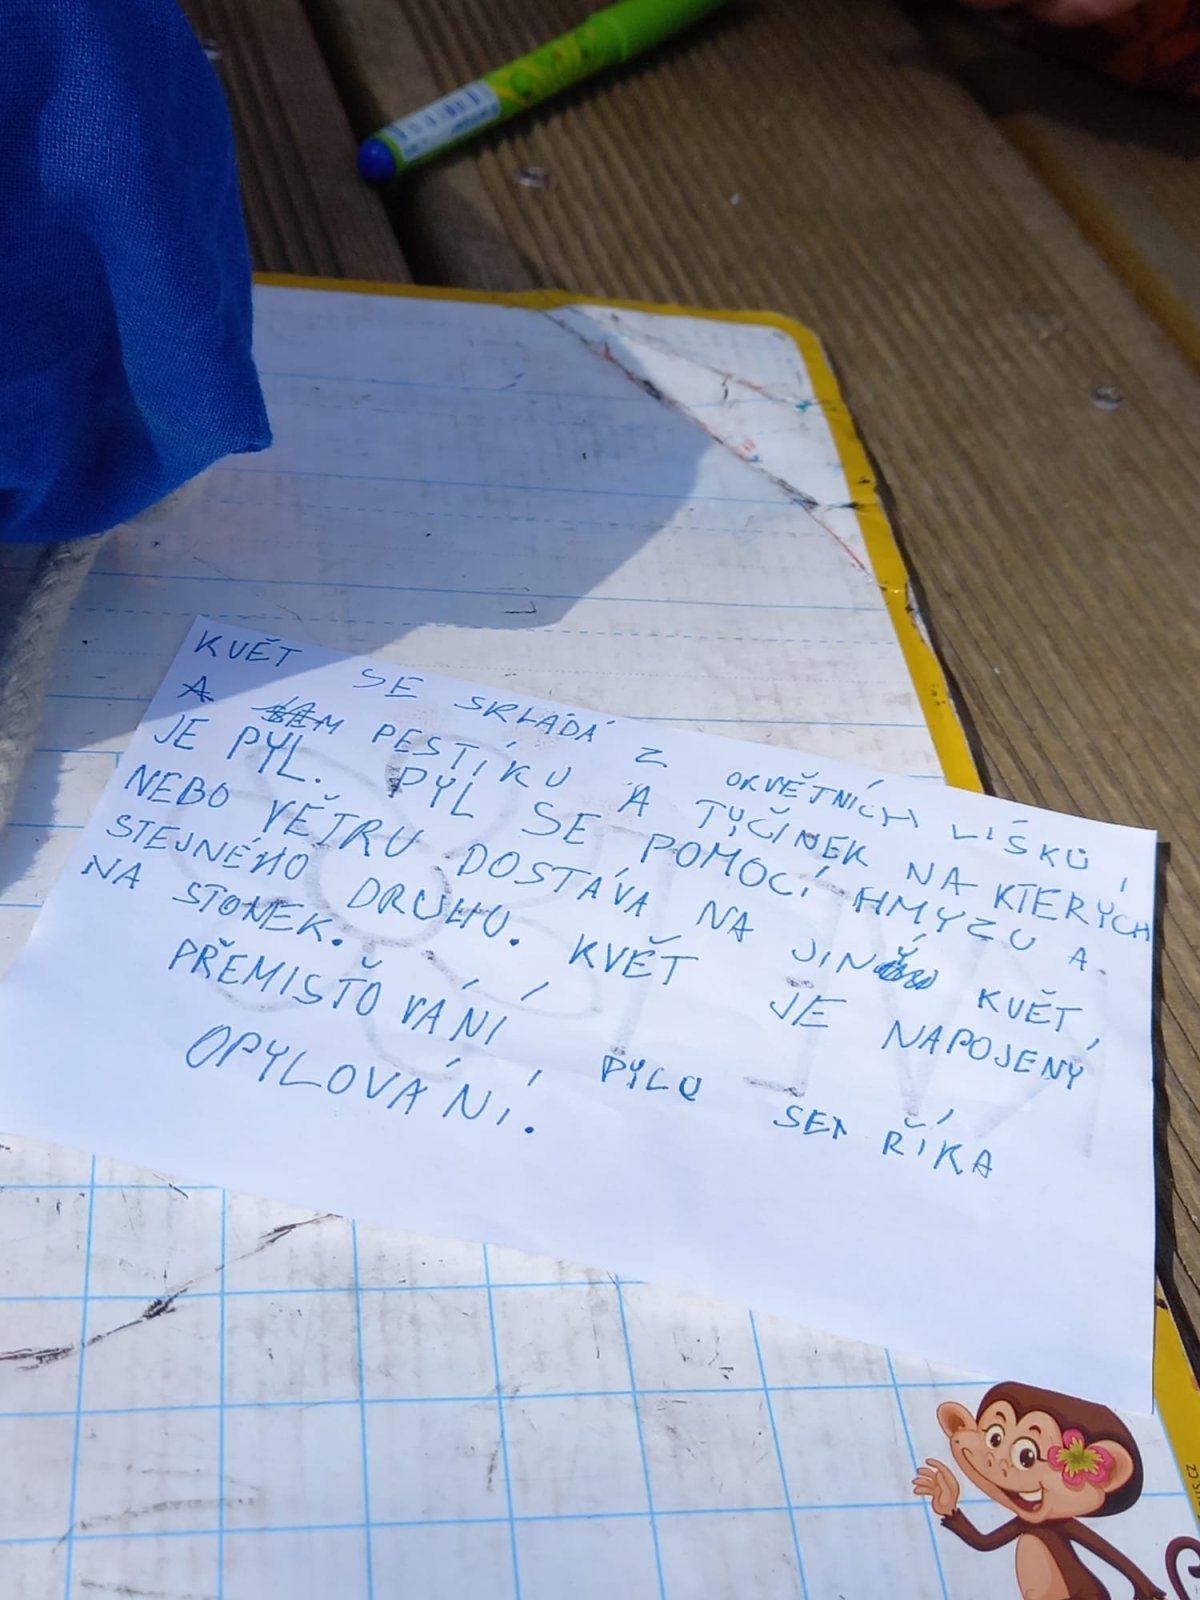 KVĚT SE SKLÁDÁ Z OKVĚTNÍCH LIŠKŮ,
A PESTÍKU A TYČINEK NA KTERÝCH
JE PYL. PYL SE POMOCÍ HMYZU A
NEBO VĚTRU DOSTÁVA NA JINÝ KVĚT,
STEJNÉHO DRUHU. KVĚT JE NAPOJENÝ
NA STONEK.
PŘEMISŤOVÁNÍ PYLU SE ŘÍKA
OPYLOVÁNÍ.